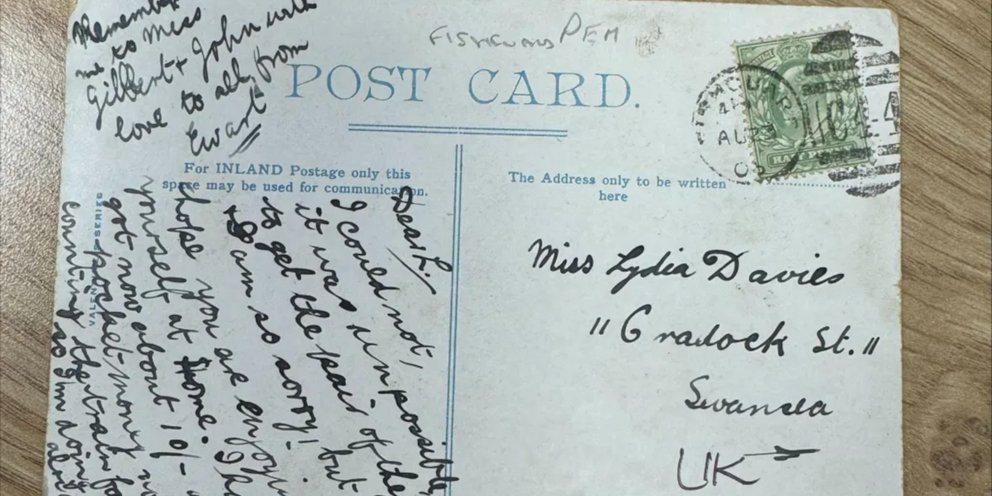 Remember
me to Miss
Gilbert + John with
love to all, from
Ewart
FISHGUARD PEM
POST CARD.
For INLAND Postage only this
space may be used for communication.
The Address only to be written
here
VALENTINES SERIES
Dear L./
I could not,
it was unpossible,
to get the pair of the
+ I am so sorry! but
hope you are enjoyin
yourself at Home. I ha
got now about 10/-
pocket-money no
counting the train fa
so I'm doing
AU 23
03
Miss Lydia Davies
"Cradock St."
Swansea
UK